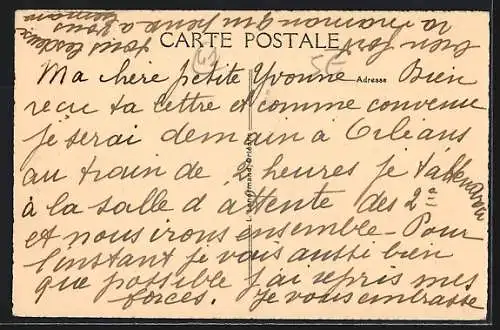 CARTE POSTALE
Adresse
Ma chère petite Yvonne Bien
reçu ta lettre et comme convenu
je serai demain à Orléans
au train de 2 heures je t'attendrai
à la salle d'attente des 2e
et nous irons ensemble - Pour
l'instant je vais aussi bien
que possible j'ai repris mes
forces. Je vous embrasse
bien fort
tous les deux
la maman qui pense à vous